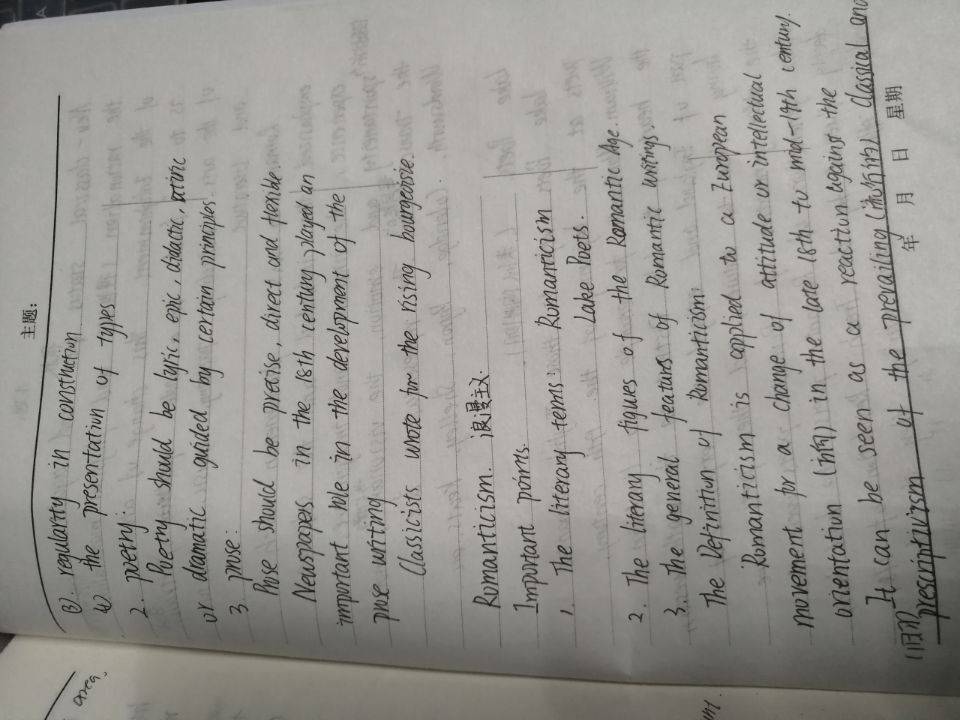 主题:
3). regularity in construction
4) the presentation of types
2. poetry:
Poetry should be lyric, epic, didactic, satiric
or dramatic guided by certain principles.
3. prose:
Prose should be precise, direct and flexible.
Newspapers in the 18th century played an
important hole in the development of the
prose writing
Classicists wrote for the rising bourgeoisie.
Romanticism. 浪漫主义.
Important points.
1. The literary terms: Romanticism
Lake Poets.
2. The literary figures of the Romantic Age.
3. The general featurs of Romantic writings
The Definition of Romanticism:
Romanticism is applied to a European
movement for a change of attitude or intellectual
orientation (方向) in the late 18th to mid-19th century.
It can be seen as a reaction agains the
prescriptivism of the prevailing (流行的) classical and
年 月 日 星期
area.